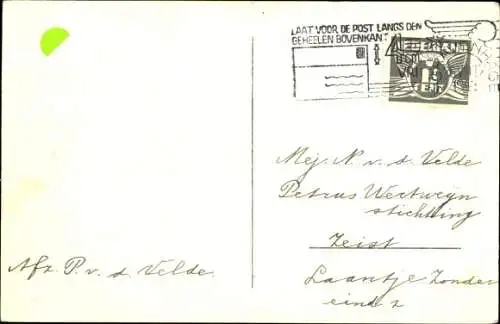 LAAT VOOR DE POST LANGS DEN
GEHEELEN BOVENKANT
CENT
Mej. N. v. d. Velde
Petrus Weetweijn
stichting
Zeist
Laantje Zonder
eind 2
Afz. P. v. d. Velde.